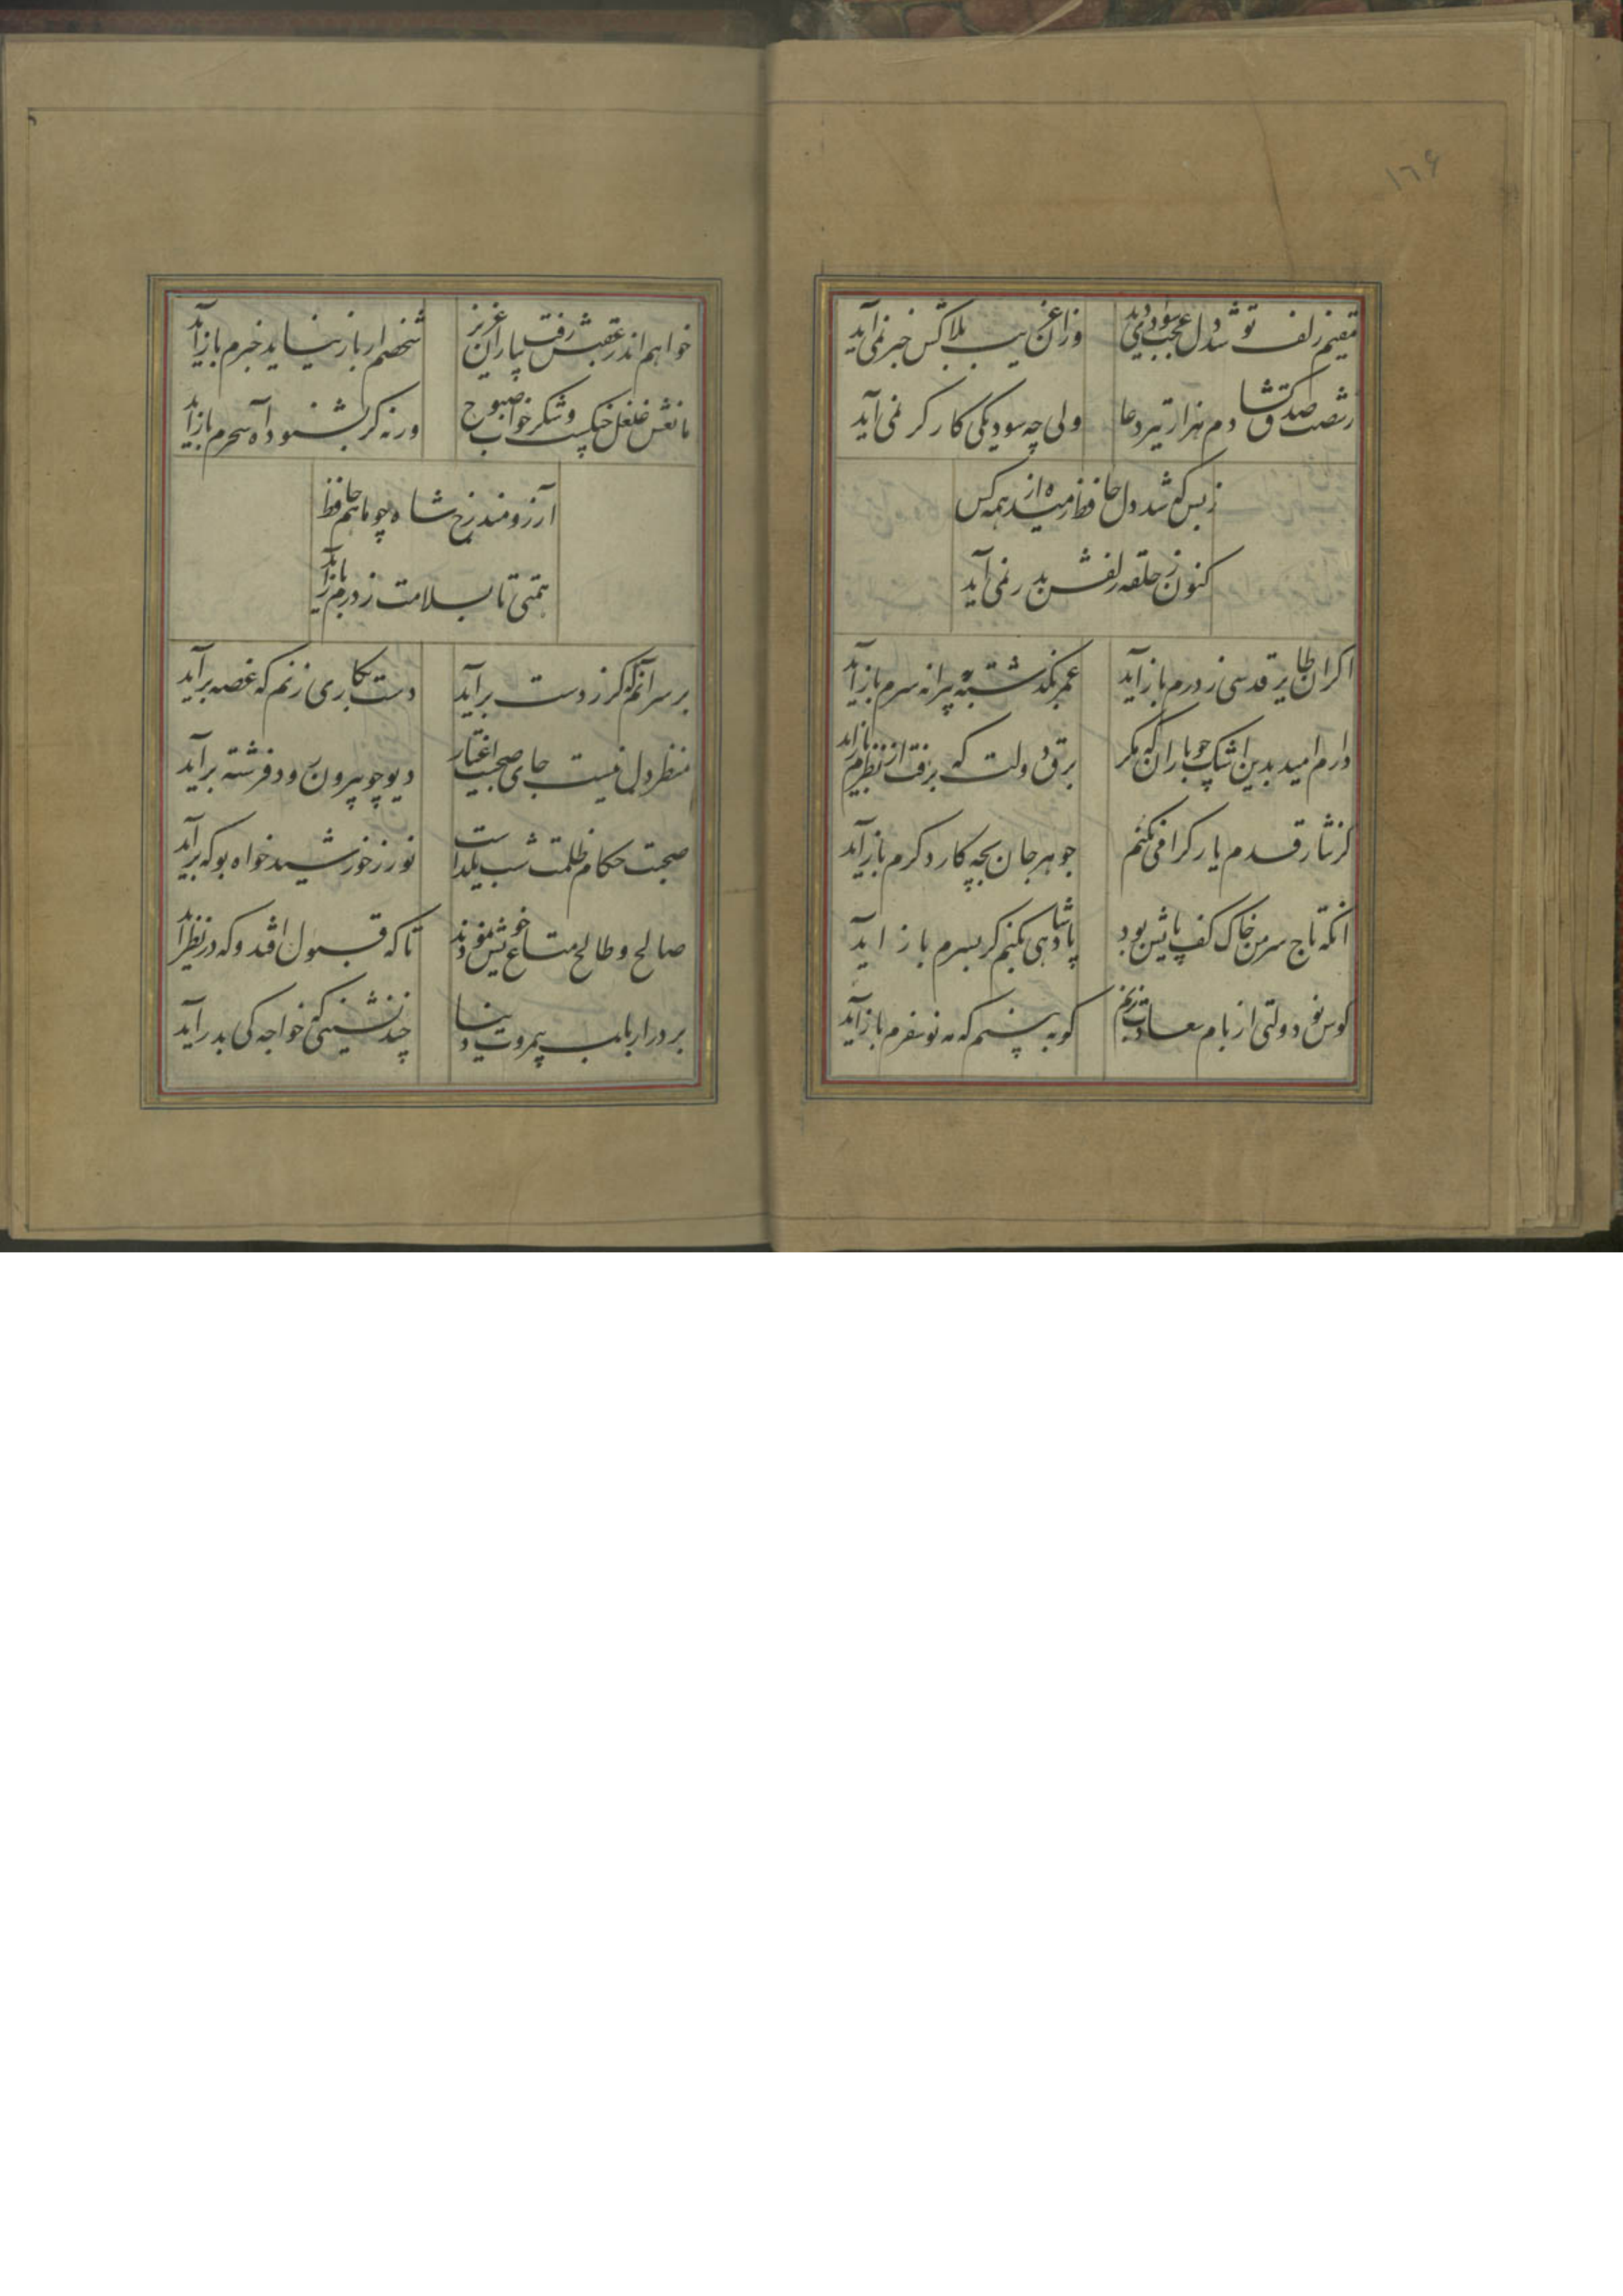 ۱۶۶
مقیم زلف تو شد دل عجب سوادی دید
وزان غریب بلاکش خبر نمی آید
زشصت صدق گشادم هزار تیر دعا
ولی چه سود یکی کارکر نمی آید
زبس که شد دل حافظ رمیده از همه کس
کنون ز حلقه زلفش بدر نمی آید
اکر ان طایر قدسی ز درم باز آید
عمر بکذشته به پیرانه سرم باز آید
دارم امید بدین اشک چو باران که مکر
برق دولت که برفت از نظرم باز آید
کر نثار قدم یار کرامی نکنم
جوهر جان بچه کار دکرم باز آید
انکه تاج سر من خاک کف پایش بود
پادشاهی بکنم کر بسرم باز اید
کوس نو دولتی از بام سعادت بزنم
کر به بینم که مه نو سفرم باز آید
خواهم اندر عقبش رفت بیاران عزیز
شخصم ار باز نیاید خبرم باز آید
مانعش غلغل چنکست و شکر خواب صبوح
ورنه کر بشنود آه سحرم باز آید
آرزومند رخ شاه چو ماهم حافظ
همتی تا بسلامت ز درم باز آید
بر سر آنم که کر ز دست برآید
دست بکاری زنم که غصه برآید
منظر دل نیست جای صحبت اغیار
دیو چو بیرون رود فرشته برآید
صحبت حکام ظلمت شب یلداست
نور ز خورشید خواه بو که برآید
صالح و طالح متاع خویش نمودند
تا که قبول افتد و که در نظر آید
بر در ارباب بیمروت دنیا
چند نشینی که خواجه کی بدر آید